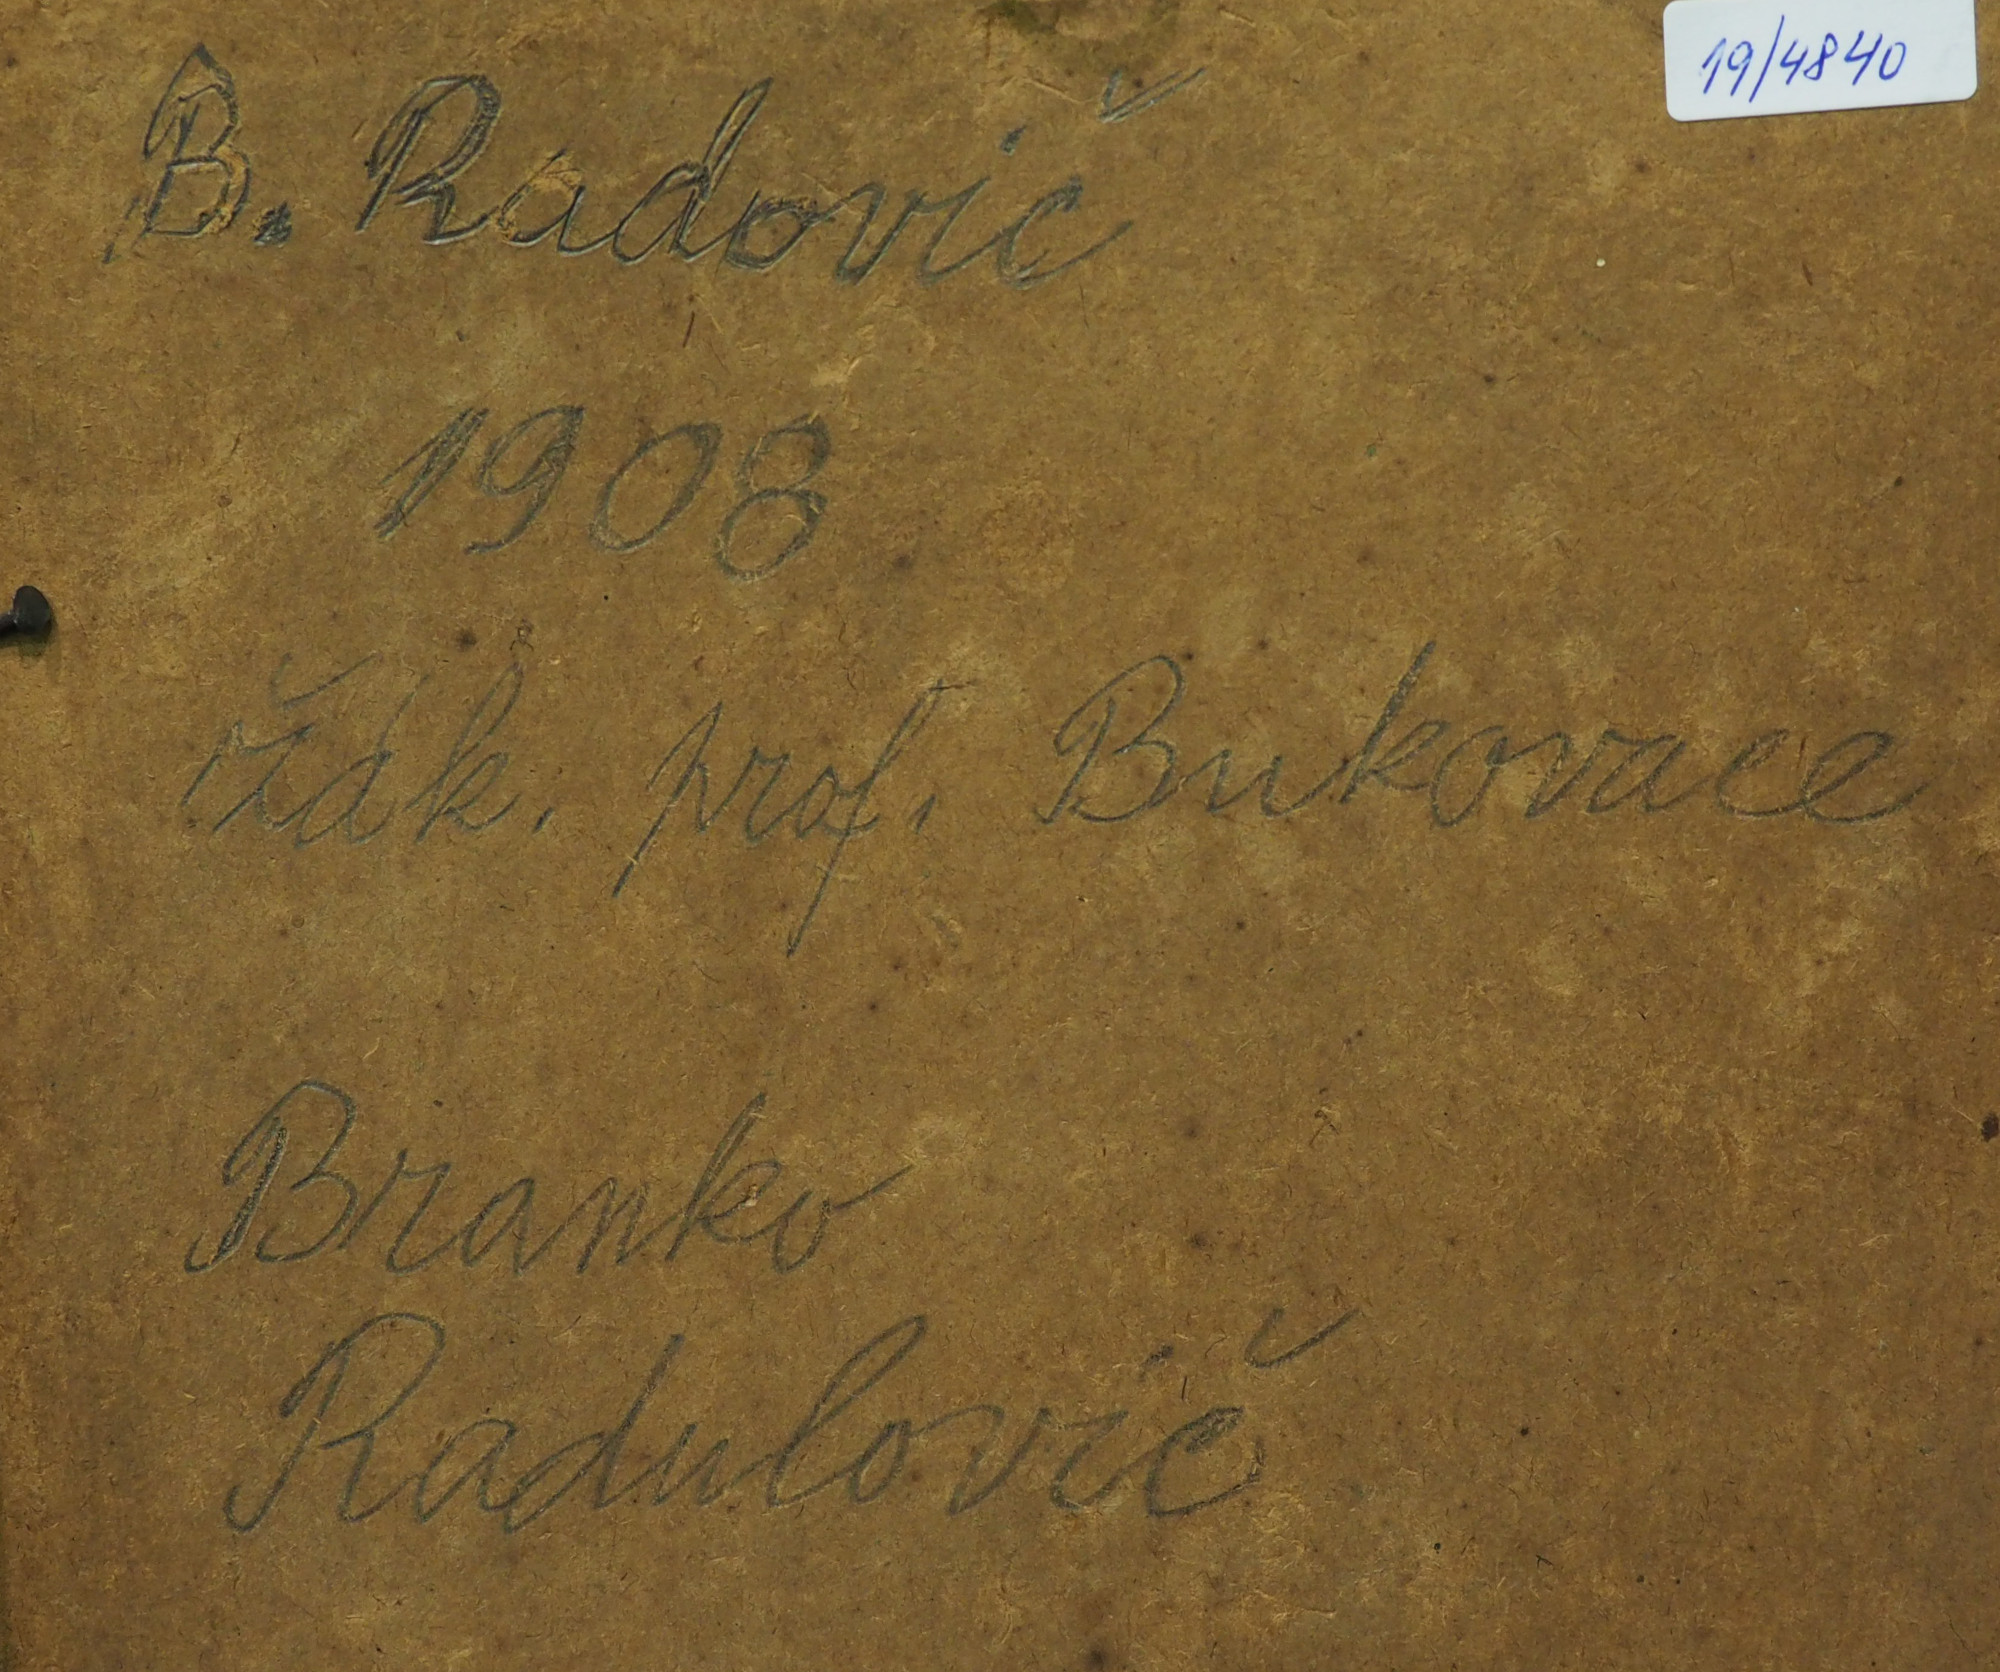 19/4840
B. Radovič
1908
žák. prof. Bukovace
Branko
Radulovič